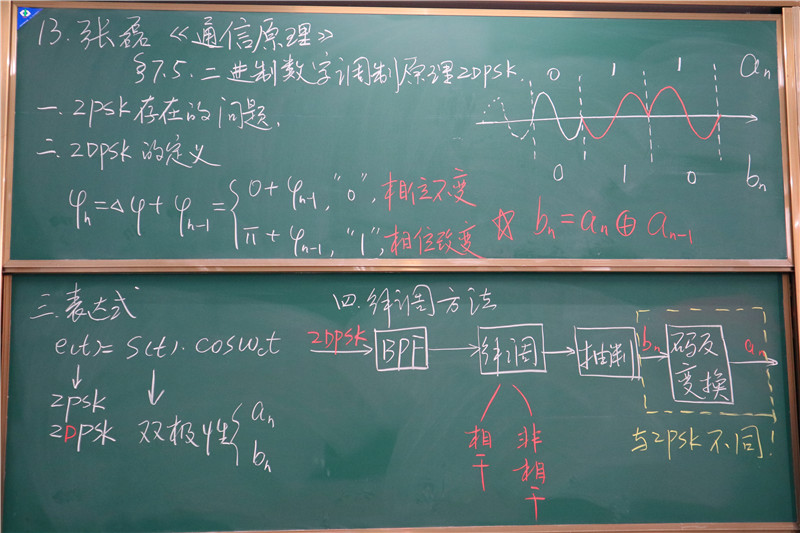 13.张磊《通信原理》
§7.5.二进制数字调制原理2DPSK.
0 1 1 an
0 1 0 bn
一.2PSK存在的问题.
二.2DPSK的定义
φn=△φ+φn-1={0+φn-1,"0",相位不变
π+φn-1,"1",相位改变
☆ bn=an⊕an-1
三.表达式
e(t)=S(t).cosωct
2PSK
2DPSK
双极性{an
bn
四.解调方法
2DPSK BPF 解调 抽判 bn 码反变换 an
相干
非相干
与2PSK不同!